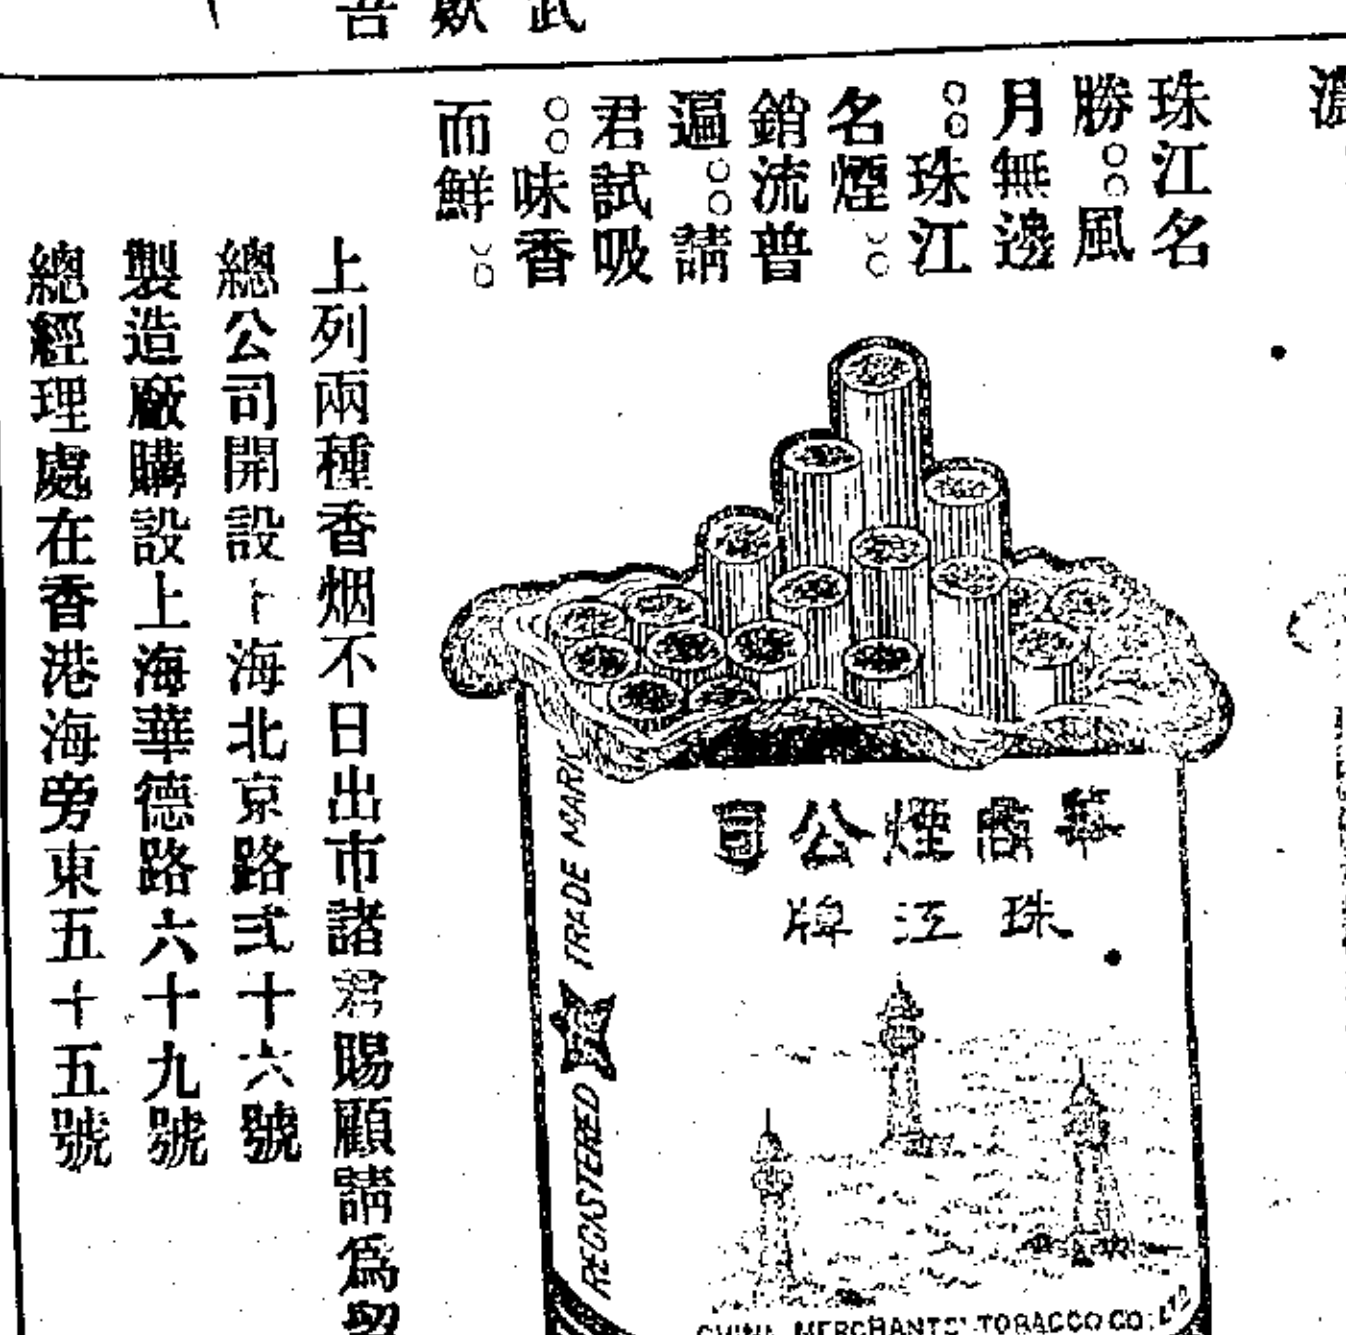 珠江名
勝○○風
月無邊
○○珠江
名煙○○
銷流普
遍○○請
君試吸
○○味香
而鮮○○
華商煙公司
珠江牌
TRADE MARK
REGASTERED
CHINA MERCHANTS' TOBACCO CO. LTD
上列兩種香烟不日出市諸君賜顧請爲留
總公司開設上海北京路弍十六號
製造廠購設上海華德路六十九號
總經理處在香港海旁東五十五號